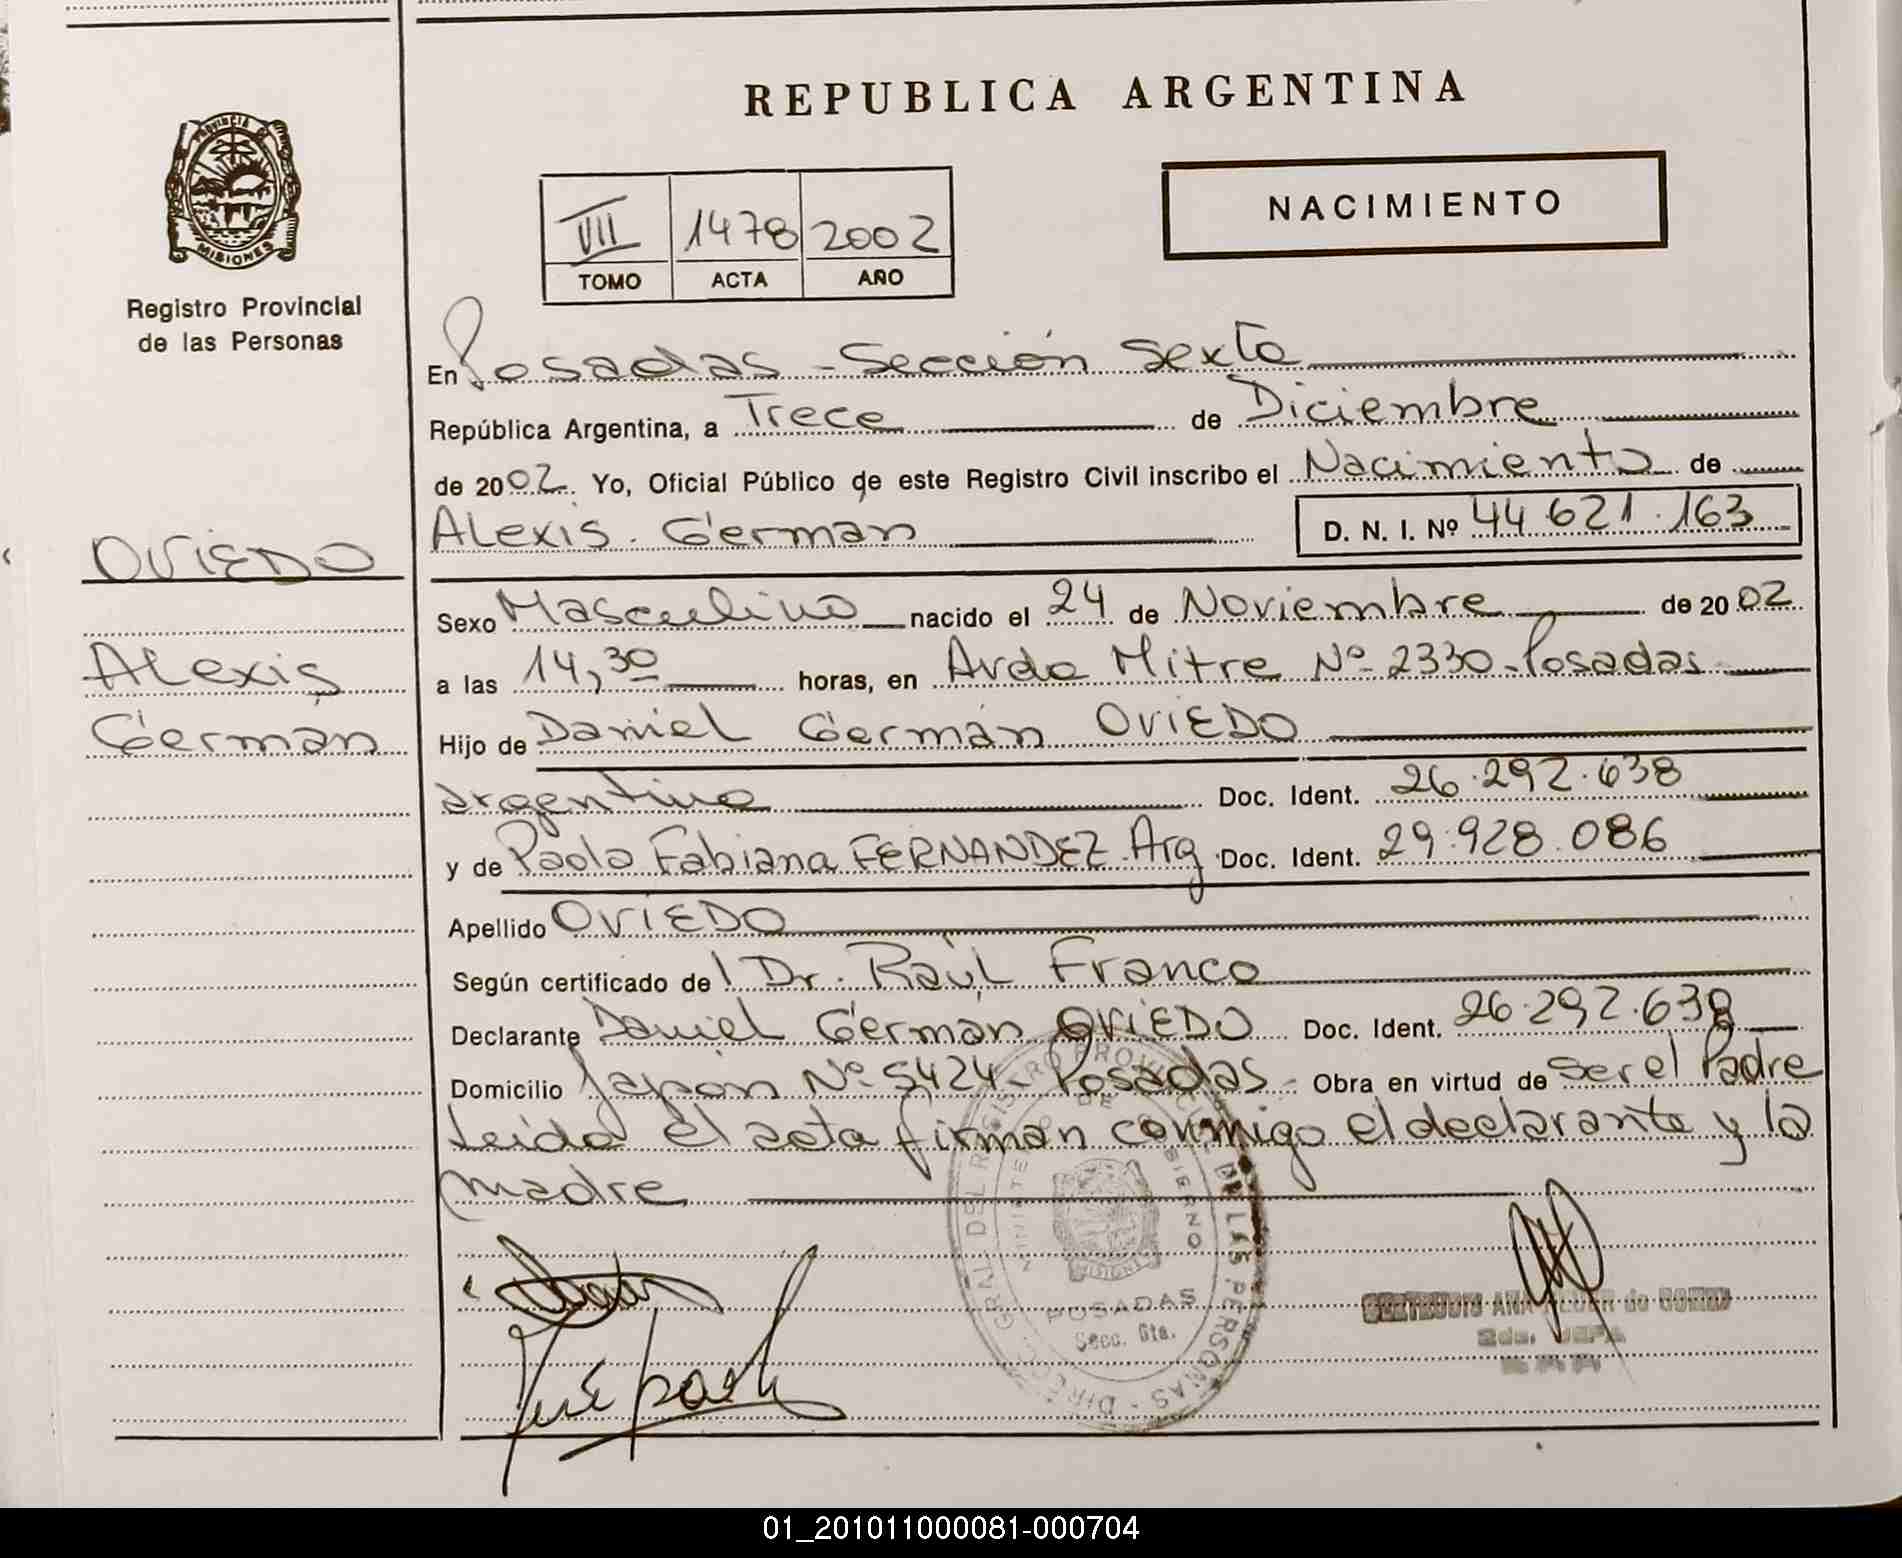 REPUBLICA ARGENTINA
PROVINCIA DE
MISIONES
Registro Provincial
de las Personas
VII 1478 2002
TOMO ACTA AÑO
NACIMIENTO
En Posadas - Sección Sexta
República Argentina, a Trece de Diciembre
de 2002. Yo, Oficial Público de este Registro Civil inscribo el Nacimiento de
Alexis Germán D. N. I. Nº 44.621.163
OVIEDO
Alexis
Germán
Sexo Masculino nacido el 24 de Noviembre de 2002
a las 14,30 horas, en Avda Mitre Nº 2330 - Posadas
Hijo de Daniel Germán OVIEDO
argentino Doc. Ident. 26.292.638
y de Paola Fabiana FERNANDEZ Arg Doc. Ident. 29.928.086
Apellido OVIEDO
Según certificado de l Dr. Raúl Franco
Declarante Daniel Germán OVIEDO Doc. Ident. 26.292.638
Domicilio Japón Nº 5424 - Posadas - Obra en virtud de Ser el Padre
Leida el acta firman conmigo el declarante y la
madre
DIREC. GRAL. DEL REGISTRO PROVINCIAL DE LAS PERSONAS
MINISTERIO DE GOBIERNO
MISIONES
POSADAS
Secc. 6ta.
2da. JEFA
01_201011000081-000704